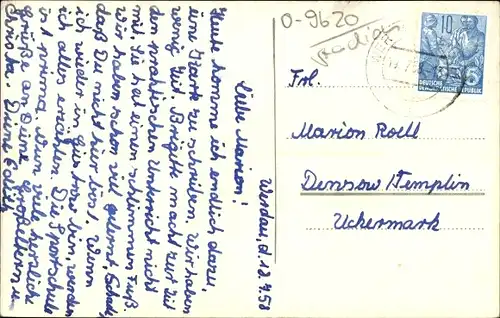 O-9620
Werdau, d. 12.4.58
Liebe Marion!
Heute komme ich endlich dazu,
eine Karte zu schreiben. Wir haben
wenig Zeit. Brigitte macht zur Zeit
den praktischen Unterricht nicht
mit. Sie hat einen schlimmen Fuß.
Wir haben schon viel gelernt. Schade,
daß Du nicht hier bist. Wenn
ich wieder in bin, werde
ich alles erzählen. Die Sportschule
ist prima. Nun viele herzliche
Grüße an Deine Großeltern u.
Christa. Deine Edith
10
DEUTSCHE
DEMOKRATISCHE REPUBLIK
Frl.
Marion Roell
Densow / Templin
Uckermark